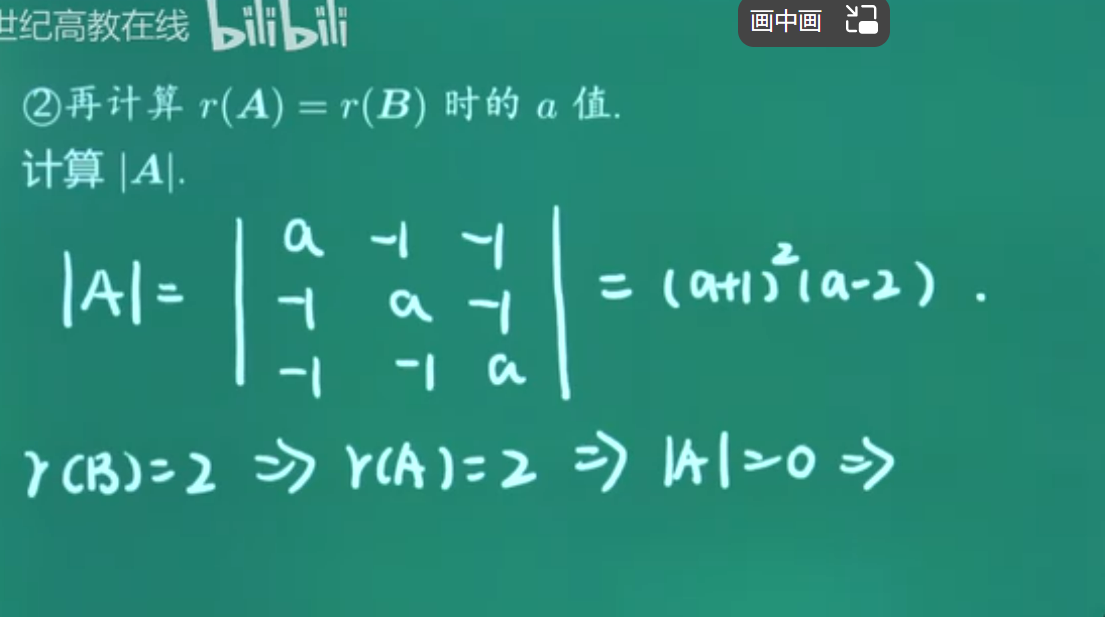 世纪高教在线 bilibili
画中画
②再计算 r(A) = r(B) 时的 a 值.
计算 |A|.
|A| = | a -1 -1 | = (a+1)²(a-2) .
-1 a -1
-1 -1 a
r(B)=2 ⇒ r(A)=2 ⇒ |A|=0 ⇒